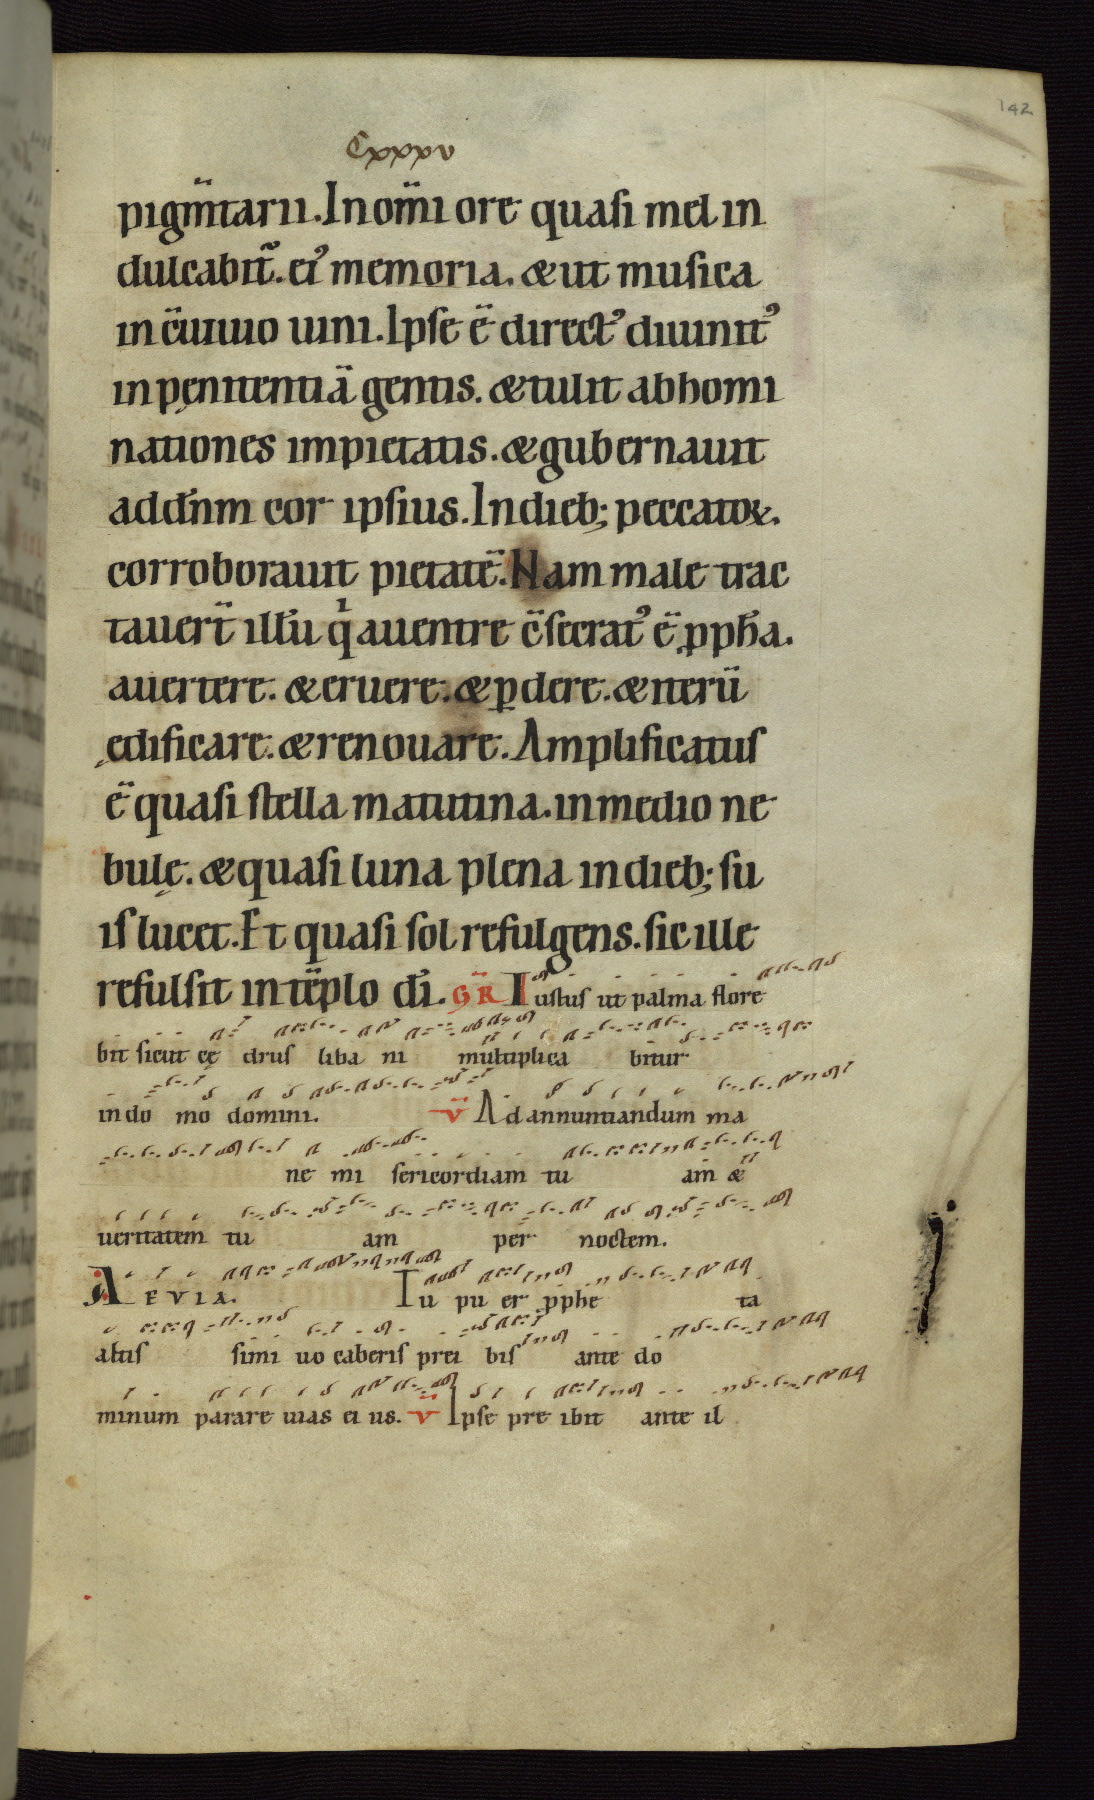 142
Cxxxv
pigm̄tarii. In om̄i ore quasi mel in
dulcabit̄. ei᾿ memoria. & ut musica
in c̄uiuio uini. Ipse ē direct᾿ diuinit᾿
in pęnitentiā gentis. & tulit abhomi
nationes impietatis. & gubernauit
ad dn̄m cor ipsius. In dieb; peccatoꝝ.
corroborauit pietatē. Nam male trac
tauer̄t illū qͥ a uentre c̄secrat᾿ ē ꝓph̄a.
auertere. & eruere. & ꝑdere. & iterū
ędificare. & renouare. Amplificatus
ē quasi stella matutina. in medio ne
bulę. & quasi luna plena in dieb; su
is lucet. Et quasi sol refulgens. sic ille
refulsit in tēplo dī. GR̄ Iustus ut palma flore
bit sicut cędrus liba ni multiplica bitur
in do mo domini. v̄ Ad annuntiandum ma
ne mi sericordiam tu am &
ueritatem tu am per noctem.
AEVIA. Tu pu er ꝓphe ta
altis simi uo caberis prei bis ante do
minum parare uias ei us. v̄ Ipse pre ibit ante il